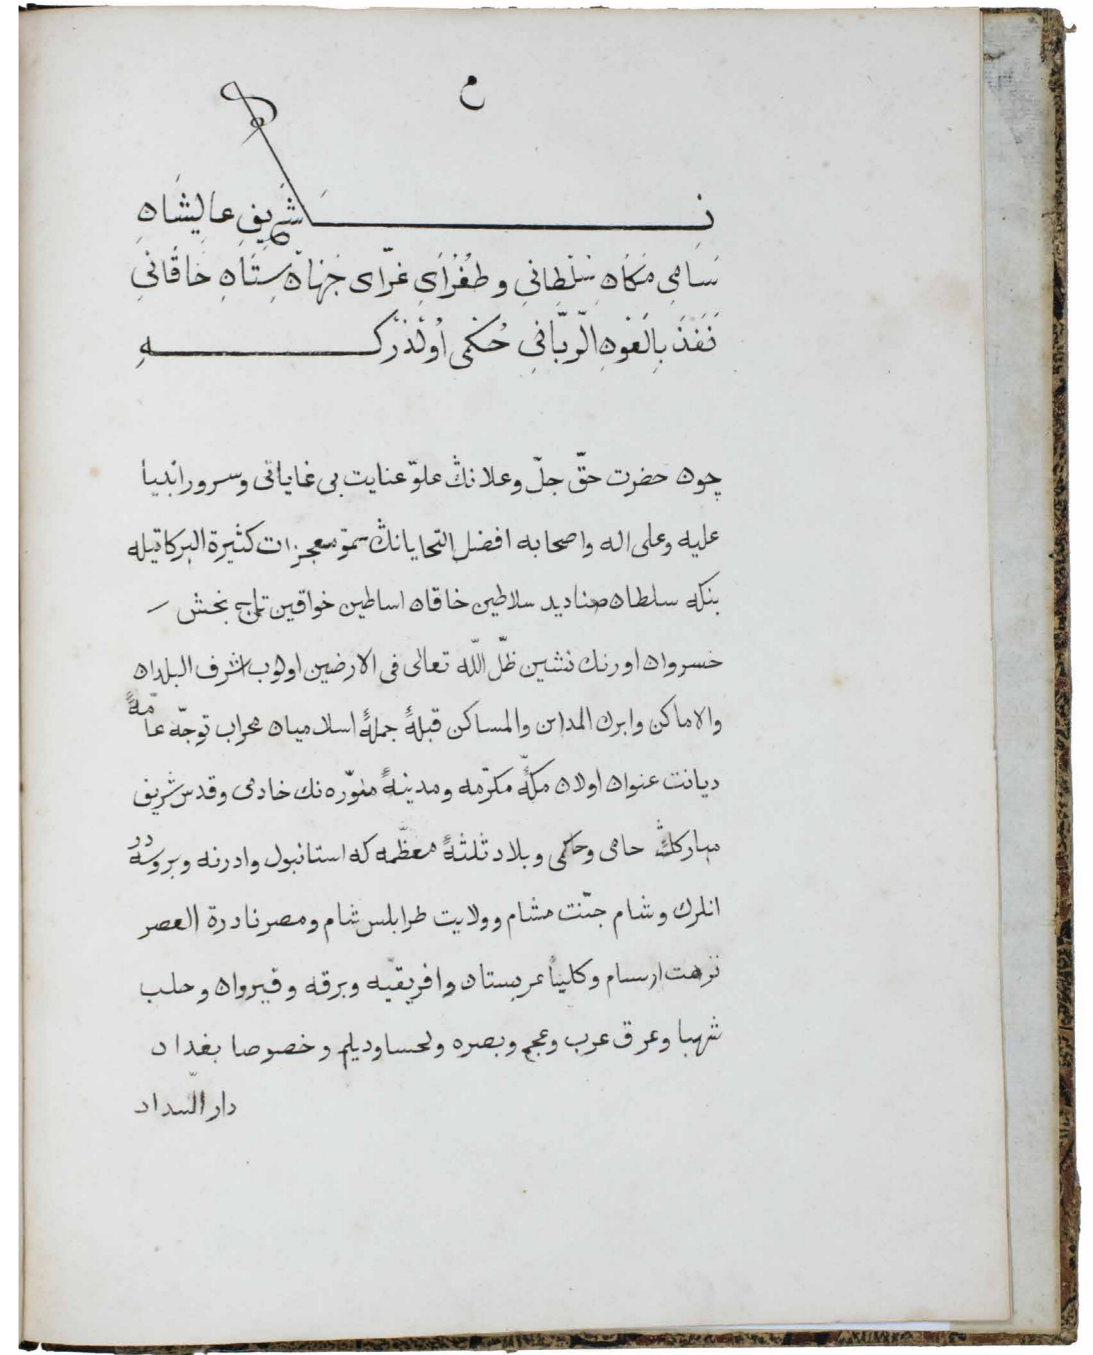 م
نشان شريفِ عاليشانِ
سَامِى مَكَانِ سُلْطانِى و طُغْرَاىِ غَرّاى جَهَان سِتَانِ خَاقَانِى
نَفَذَ بِالْعَوْنِ الرّبّانِى حُكْمى اُولْدُرْكــه
چون حضرت حقّ جلّ وعلانڭ علوّ عنايت بى غاياتى وسرور انبيا
عليه وعلى اله واصحابه افضل التحايانڭ سموّ معجزات كثيرة البركاتيله
بنكه سلطان صناديد سلاطين خاقان اساطين خواقين تاج بخش
خسروان اورنك نشين ظلّ اللّه تعالى فى الارضين اولوب اشرف البلدان
والاماكن وابرك المداين والمساكن قبلهٔ جملهٔ اسلاميان محراب توجّه عامّهٔ
ديانت عنوان اولان مكّهٔ مكرّمه ومدينهٔ منوّره نك خادمى وقدس شريف
مباركڭ حامى وحاكمى وبلاد ثلثهٔ معظّمه كه استانبول وادرنه وبروسه در
انلرك وشام جنّت مشام وولايت طرابلس شام ومصر نادرة العصر
نزهت ارسام وكلياً عربستان وافريقيّه وبرقه وقيروان وحلب
شهبا وعرق عرب وعجم وبصره ولحسا وديلم وخصوصا بغداد
دار السّداد